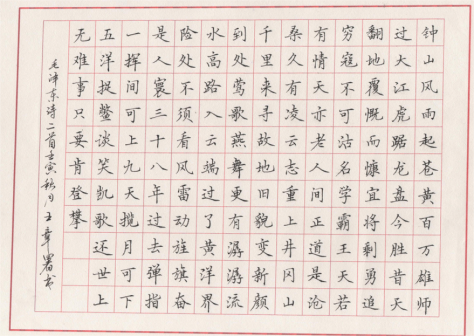 钟山风雨起苍黄百万雄师
过大江虎踞龙盘今胜昔天
翻地覆慨而慷宜将剩勇追
穷寇不可沽名学霸王天若
有情天亦老人间正道是沧
桑久有凌云志重上井冈山
千里来寻故地旧貌变新颜
到处莺歌燕舞更有潺潺流
水高路入云端过了黄洋界
险处不须看风雷动旌旗奋
是人寰三十八年过去弹指
一挥间可上九天揽月可下
五洋捉鳖谈笑凯歌还世上
无难事只要肯登攀
毛泽东诗二首壬寅秋月王章署书